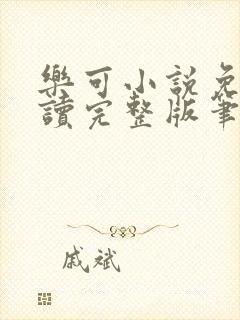 樂可小說免
讀完整版筆
戚斌